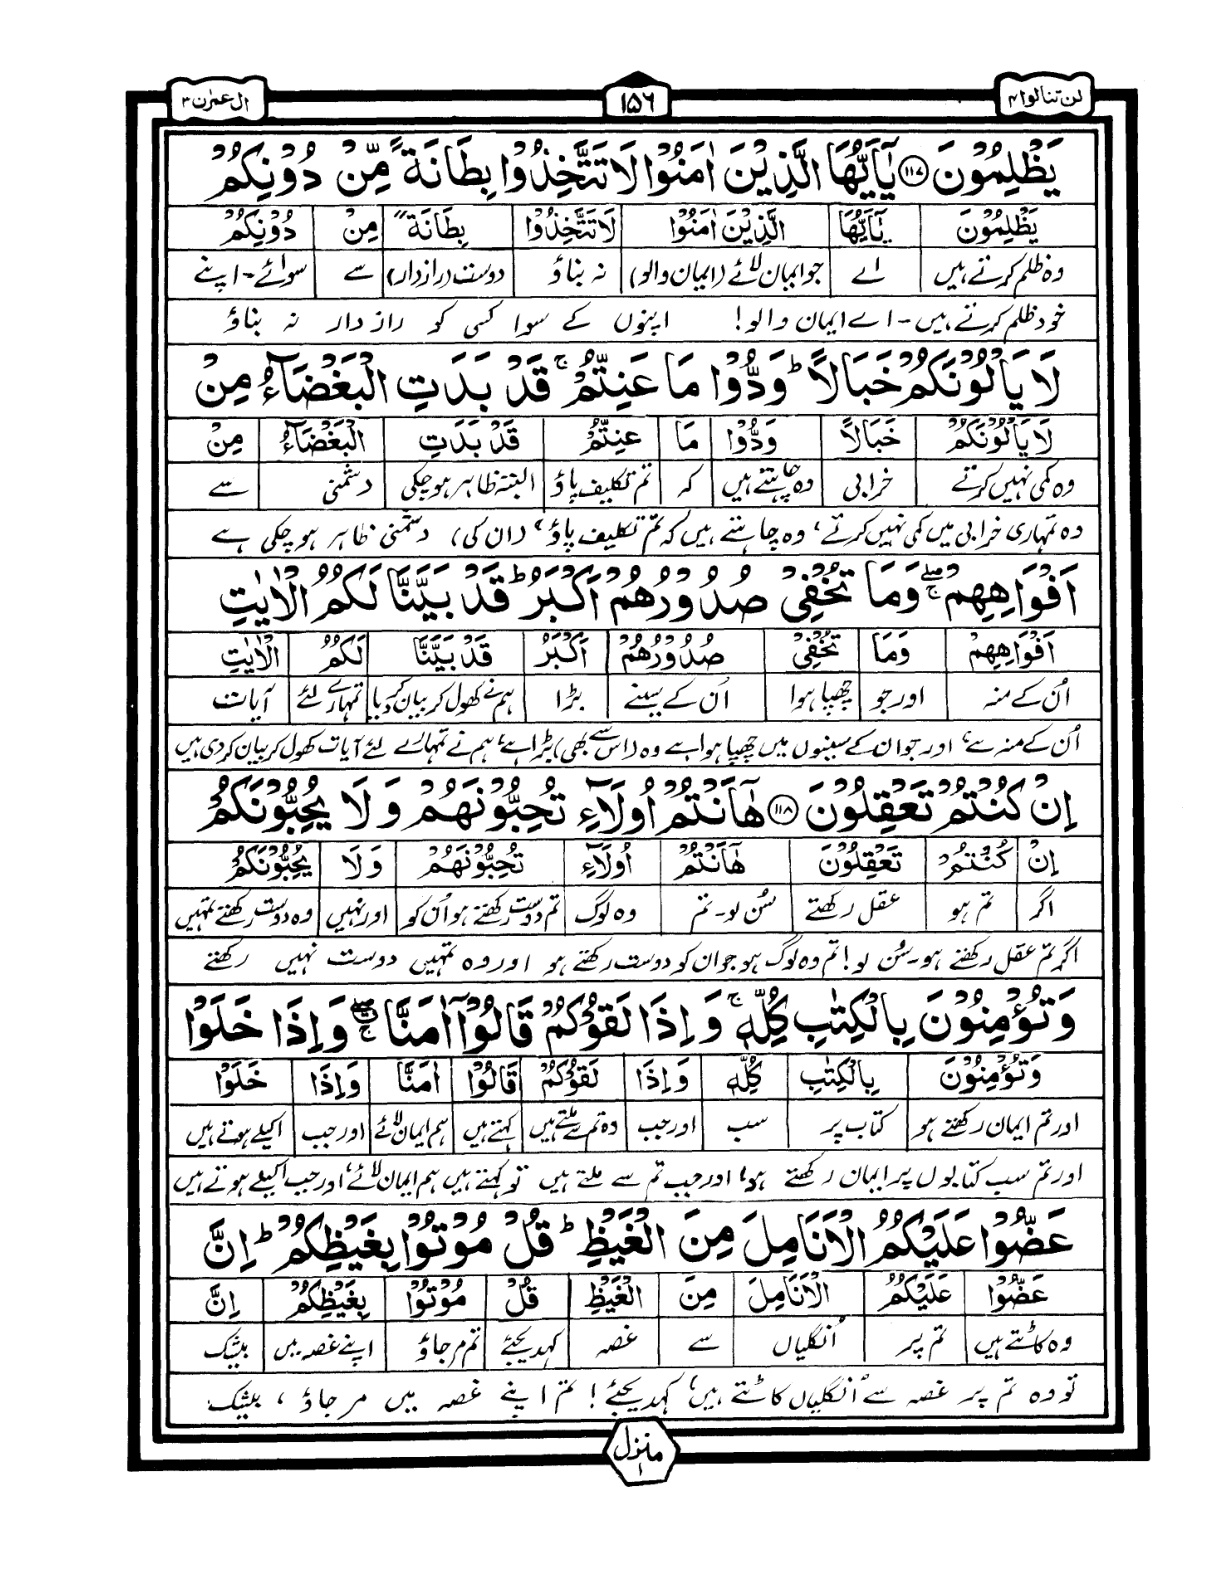 لن تنالوا ۴
۱۵۶
اٰل عمرٰن ۳
يَظْلِمُوْنَ ۝۱۱۷ يٰۤاَيُّهَا الَّذِيْنَ اٰمَنُوْا لَا تَتَّخِذُوْا بِطَانَةً مِّنْ دُوْنِكُمْ
يَظْلِمُوْنَ يٰۤاَيُّهَا الَّذِيْنَ اٰمَنُوْا لَا تَتَّخِذُوْا بِطَانَةً مِنْ دُوْنِكُمْ
وہ ظلم کرتے ہیں اے جو ایمان لائے (ایمان والو) نہ بناؤ دوست (رازدار) سے سوائے - اپنے
خود ظلم کرتے ہیں - اے ایمان والو! اپنوں کے سوا کسی کو رازدار نہ بناؤ
لَا يَاْلُوْنَكُمْ خَبَالًا ؕ وَدُّوْا مَا عَنِتُّمْ ۚ قَدْ بَدَتِ الْبَغْضَآءُ مِنْ
لَا يَاْلُوْنَكُمْ خَبَالًا وَدُّوْا مَا عَنِتُّمْ قَدْ بَدَتِ الْبَغْضَآءُ مِنْ
وہ کمی نہیں کرتے خرابی وہ چاہتے ہیں کہ تم تکلیف پاؤ البتہ ظاہر ہوچکی دشمنی سے
وہ تمہاری خرابی میں کمی نہیں کرتے، وہ چاہتے ہیں کہ تم تکلیف پاؤ، (ان کی) دشمنی ظاہر ہو چکی ہے
اَفْوَاهِهِمْ ۖۚ وَمَا تُخْفِيْ صُدُوْرُهُمْ اَكْبَرُ ؕ قَدْ بَيَّنَّا لَكُمُ الْاٰيٰتِ
اَفْوَاهِهِمْ وَمَا تُخْفِيْ صُدُوْرُهُمْ اَكْبَرُ قَدْ بَيَّنَّا لَكُمُ الْاٰيٰتِ
اُن کے منہ اور جو چھپا ہوا اُن کے سینے بڑا ہم نے کھول کر بیان کردیا تمہارے لئے آیات
اُن کے منہ سے، اور جو ان کے سینوں میں چھپا ہوا ہے وہ (اس سے بھی) بڑا ہے، ہم نے تمہارے لئے آیات کھول کر بیان کردی ہیں
اِنْ كُنْتُمْ تَعْقِلُوْنَ ۝۱۱۸ هٰۤاَنْتُمْ اُولَآءِ تُحِبُّوْنَهُمْ وَ لَا يُحِبُّوْنَكُمْ
اِنْ كُنْتُمْ تَعْقِلُوْنَ هٰۤاَنْتُمْ اُولَآءِ تُحِبُّوْنَهُمْ وَ لَا يُحِبُّوْنَكُمْ
اگر تم ہو عقل رکھتے سُن لو - تم وہ لوگ تم دوست رکھتے ہو اُن کو اور نہیں وہ دوست رکھتے تمہیں
اگر تم عقل رکھتے ہو - سُن لو! تم وہ لوگ ہو جو ان کو دوست رکھتے ہو اور وہ تمہیں دوست نہیں رکھتے
وَتُؤْمِنُوْنَ بِالْكِتٰبِ كُلِّهٖ ۚ وَاِذَا لَقُوْكُمْ قَالُوْۤا اٰمَنَّا ۖۚ وَاِذَا خَلَوْا
وَتُؤْمِنُوْنَ بِالْكِتٰبِ كُلِّهٖ وَاِذَا لَقُوْكُمْ قَالُوْا اٰمَنَّا وَاِذَا خَلَوْا
اور تم ایمان رکھتے ہو کتاب پر سب اور جب وہ تم سے ملتے ہیں کہتے ہیں ہم ایمان لائے اور جب اکیلے ہوتے ہیں
اور تم سب کتابوں پر ایمان رکھتے ہو، اور جب تم سے ملتے ہیں تو کہتے ہیں ہم ایمان لائے، اور جب اکیلے ہوتے ہیں
عَضُّوْا عَلَيْكُمُ الْاَنَامِلَ مِنَ الْغَيْظِ ؕ قُلْ مُوْتُوْا بِغَيْظِكُمْ ؕ اِنَّ
عَضُّوْا عَلَيْكُمُ الْاَنَامِلَ مِنَ الْغَيْظِ قُلْ مُوْتُوْا بِغَيْظِكُمْ اِنَّ
وہ کاٹتے ہیں تم پر اُنگلیاں سے غصہ کہدیجئے تم مرجاؤ اپنے غصہ میں بیشک
تو وہ تم پر غصہ سے اُنگلیاں کاٹتے ہیں، کہدیجئے! تم اپنے غصہ میں مرجاؤ، بیشک
منزل ۱